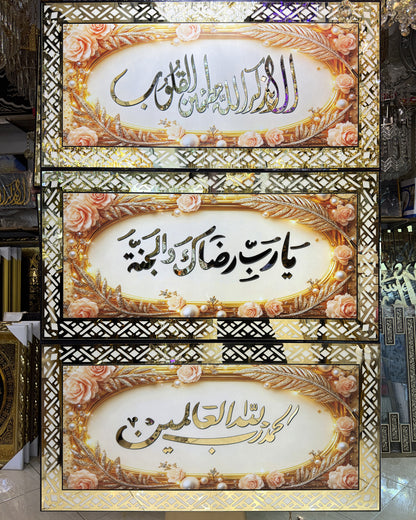 ألا بذكر الله تطمئن القلوب
يَا رَبِّ رِضَاكَ وَالجَنَّةَ
الحمد لله رب العالمين